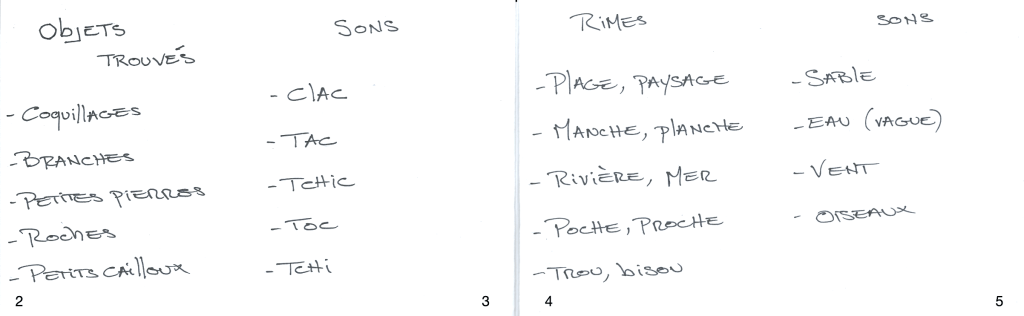 Objets
Trouvés
- Coquillages
- Branches
- Petites pierres
- Roches
- Petits cailloux
2
Sons
- Clac
- Tac
- Tchic
- Toc
- Tchi
3
Rimes
- Plage, paysage
- Manche, planche
- Rivière, mer
- Poche, proche
- Trou, bisou
4
Sons
- Sable
- Eau (vague)
- Vent
- Oiseaux
5